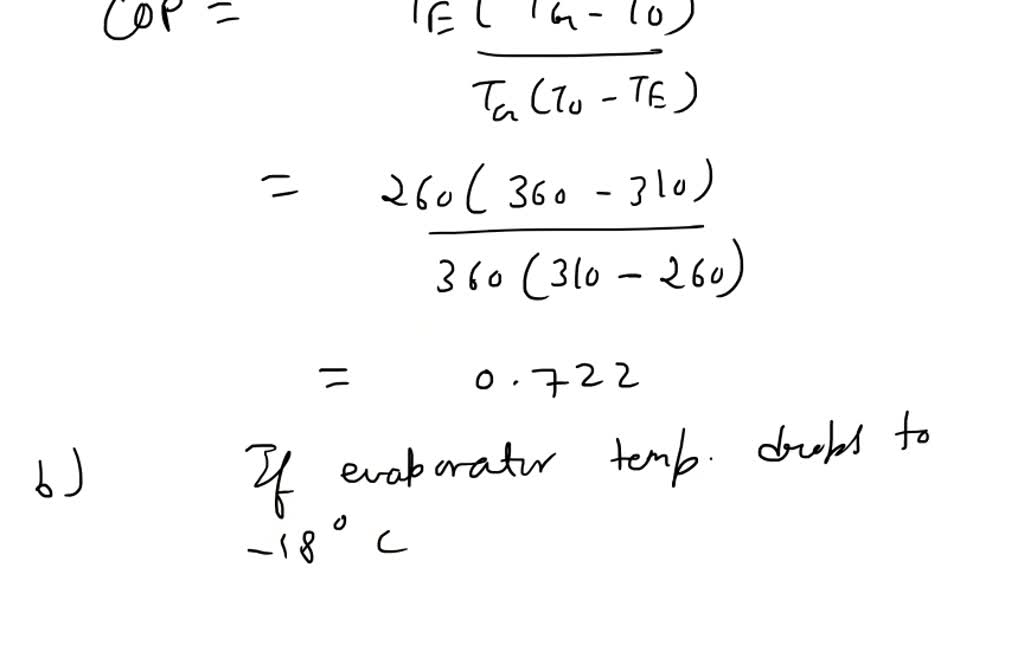 COP = TE ( TG - TO )
TG (TO - TE )
= 260 ( 360 - 310)
360 (310 - 260)
= 0.722
b) If evaporator temp. drops to
-18° C